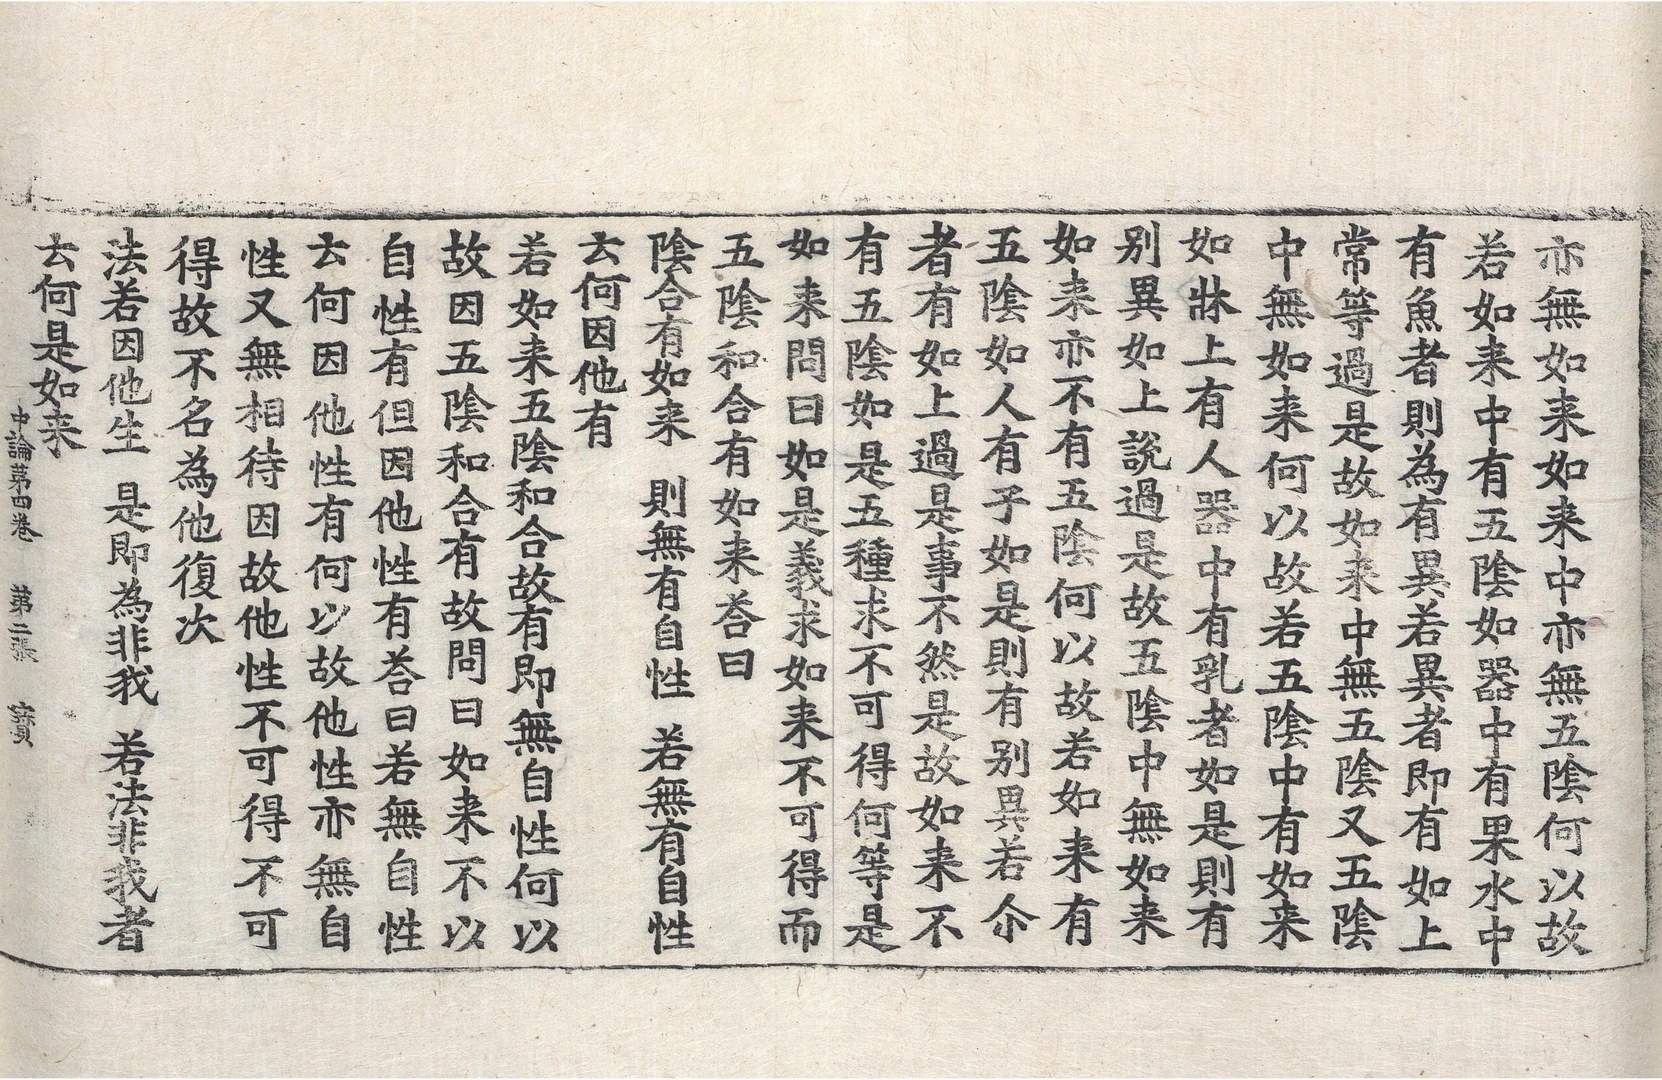 亦無如来如来中亦無五陰何以故
若如来中有五陰如器中有果水中
有魚者則為有異若異者即有如上
常等過是故如来中無五陰又五陰
中無如来何以故若五陰中有如来
如牀上有人器中有乳者如是則有
别異如上說過是故五陰中無如来
如来亦不有五陰何以故若如来有
五陰如人有子如是則有别異若尒
者有如上過是事不然是故如来不
有五陰如是五種求不可得何等是
如来問曰如是義求如来不可得而
五陰和合有如来荅曰
陰合有如来　則無有自性　若無有自性
云何因他有
若如来五陰和合故有即無自性何以
故因五陰和合有故問曰如来不以
自性有但因他性有荅曰若無自性
云何因他性有何以故他性亦無自
性又無相待因故他性不可得不可
得故不名為他復次
法若因他生　是即為非我　若法非我者
云何是如来
中論第四卷　第二張　寳